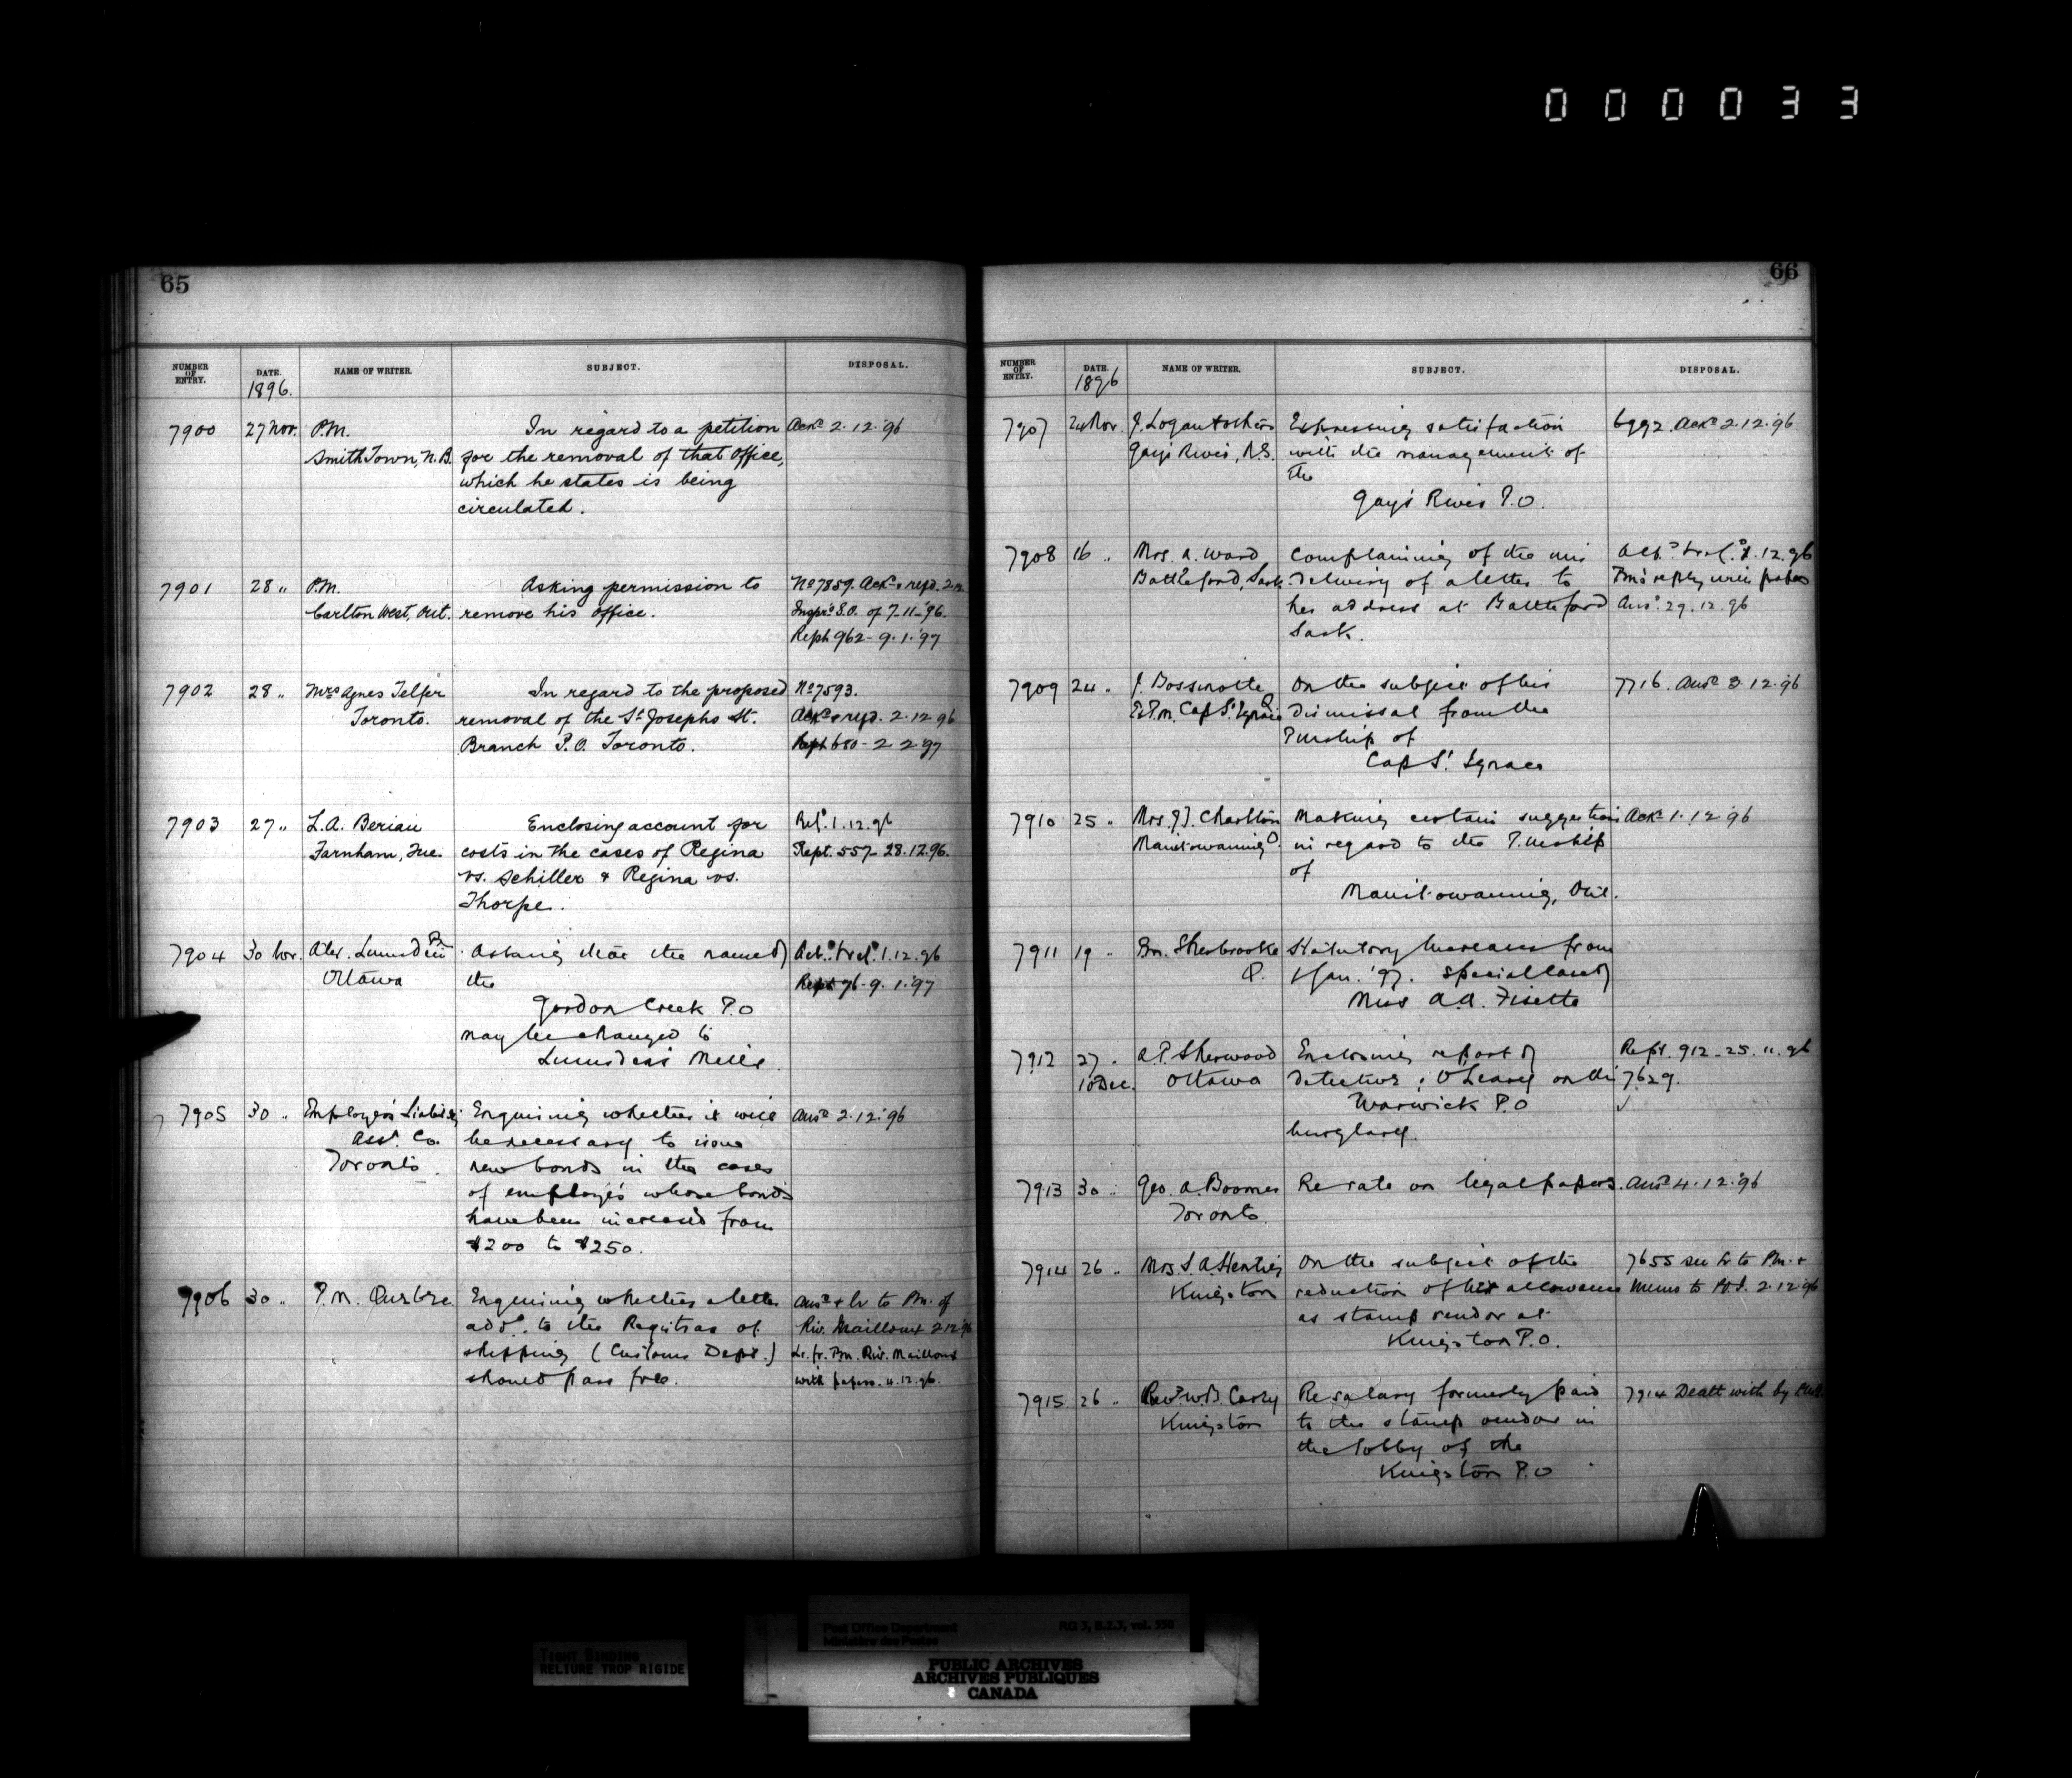 000033
65
NUMBER OF ENTRY. DATE. NAME OF WRITER. SUBJECT. DISPOSAL.
1896.
7900 27 Nov. P.M. In regard to a petition Ackd 2.12.'96
Smith Town, N.B. for the removal of that office,
which he states is being
circulated.
7901 28 " P.M. Asking permission to No 7859. Ackd & repd. 2.12
Carlton West, Ont. remove his office. Inspr's S.O. of 7.11.'96.
Reph 962 - 9.1.'97
7902 28 " Mrs Agnes Telfer In regard to the proposed No 7593.
Toronto. removal of the St Josephs St. Ackd & repd. 2.12.96
Branch P.O. Toronto. Reph 680 - 2 2 97
7903 27 " L.A. Beriau Enclosing account for Refd. 1.12.96
Farnham, Que. costs in the cases of Regina Rept. 557 - 28.12.96.
vs. Schiller & Regina vs.
Thorpe.
7904 30 Nov. Alex. Lumsden Asking that the name of Ackd. & refd. 1.12.96
Ottawa the 96 - 9.1.'97
Gordon Creek P.O
may be changed to
Lumsden's Mills
7905 30 " Employers' Liability Enquiring whether it will Ansd 2.12.'96
Assn. Co. be necessary to issue
Toronto. new bonds in the cases
of employés whose bonds
have been increased from
$200 to $250.
7906 30 " P.M. Quebec. Enquiring whether a letter Ansd & lr to Pm. of
addd. to the Registrar of Riv. Mailloux 2 12 '96
shipping (Customs Dept.) Lr. fr. Pm. Riv. Mailloux
should pass free. with papers. 4.12.96.
66
NUMBER OF ENTRY. DATE. NAME OF WRITER. SUBJECT. DISPOSAL.
1896
7907 24 Nov. J. Logan & others Expressing satisfaction 6992. Ackd 2.12.'96
Gay's River, N.S. with the management of
the
Gay's River P.O.
7908 16 " Mrs. A. Ward Complaining of the mis Ackd. & refd. 1.12.96
Battleford, Sask. delivery of a letter to Pm's reply with papers
her address at Battleford Ansd. 29.12.96
Sask.
7909 24 " J. Bossinotte On the subject of his 7716. Ansd 3.12.'96
Ex P.M. Cap St. Ignace Q dismissal from the
P.mship of
Cap St. Ignace
7910 25 " Mrs. J.J. Charlton Making certain suggestions Ackd 1.12.96
Manitowaning O. in regard to the P.mship
of
Manitowaning, Ont.
7911 19 " Pm. Sherbrooke Statutory Increases from
Q. 1 Jan. '97. Special case of
Miss A.A. Fisette
7912 27 " A.P. Sherwood Enclosing report of Rept. 912 - 25.11.96
10 Dec. Ottawa detective O'Leary on the 7629.
Warwick P.O
burglary.
7913 30 " Geo. A. Boomer Re rate on legal papers. Ansd 4.12.'96
Toronto.
7914 26 " Mrs. S.A. Hentig On the subject of the 7655 see lr to Pm. &
Kingston reduction of her allowance Memo to P.O.I. 2.12.96
as stamp vendor at
Kingston P.O.
7915 26 " Revd. W.B. Carey Re salary formerly paid 7914 Dealt with by
Kingston to the stamp vendor in
the lobby of the
Kingston P.O
Post Office Department RG 3, B.2.3, vol. 550
Ministère des Postes
TIGHT BINDING
RELIURE TROP RIGIDE
PUBLIC ARCHIVES
ARCHIVES PUBLIQUES
CANADA